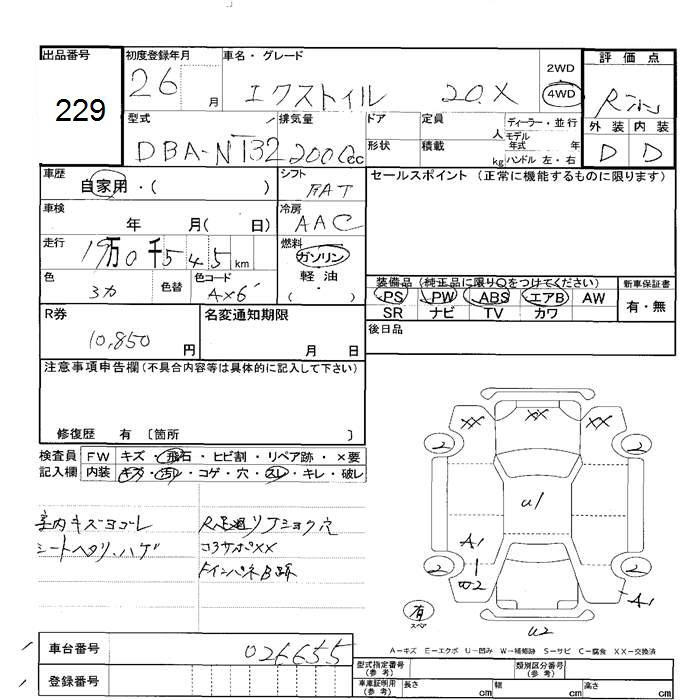 出品番号
229
初度登録年月
26 月
車名・グレード
エクストレイル 20.X
2WD
4WD
評価点
外装 内装
D D
型式
DBA-NT32
排気量
2000cc
ドア
形状
定員 人
積載 kg
ディーラー・並行
モデル年式 年
ハンドル 左・右
車歴
自家用・( )
シフト
FAT
セールスポイント (正常に機能するものに限ります)
車検
年 月( 日)
冷房
AAC
走行
19万0千545km
燃料
ガソリン
軽油
( ・ )
色
色替
色コード
装備品 (純正品に限り○をつけてください)
PS PW ABS エアB AW
SR ナビ TV カワ
新車保証書
有・無
R券
10,850円
名変通知期限
月 日
後日品
注意事項申告欄(不具合内容等は具体的に記入して下さい)
修復歴 有 〔箇所 〕
検査員
記入欄
FW キズ・飛石・ヒビ割・リペア跡・×要
内装 キズ・汚れ・コゲ・穴・スレ・キレ・破レ
室内キズヨゴレ
シートヘタリ・ハゲ
コアサポXX
XX XX XX
2 2
U1
A1
W2
2 2
A1
U2
有
スペア
A－キズ E－エクボ U－凹み W－補修跡 S－サビ C－腐食 XX－交換済
車台番号
026655
登録番号
型式指定番号
(参考)
類別区分番号
(参考)
車庫証明用
(参考)
長さ cm
幅 cm
高さ cm